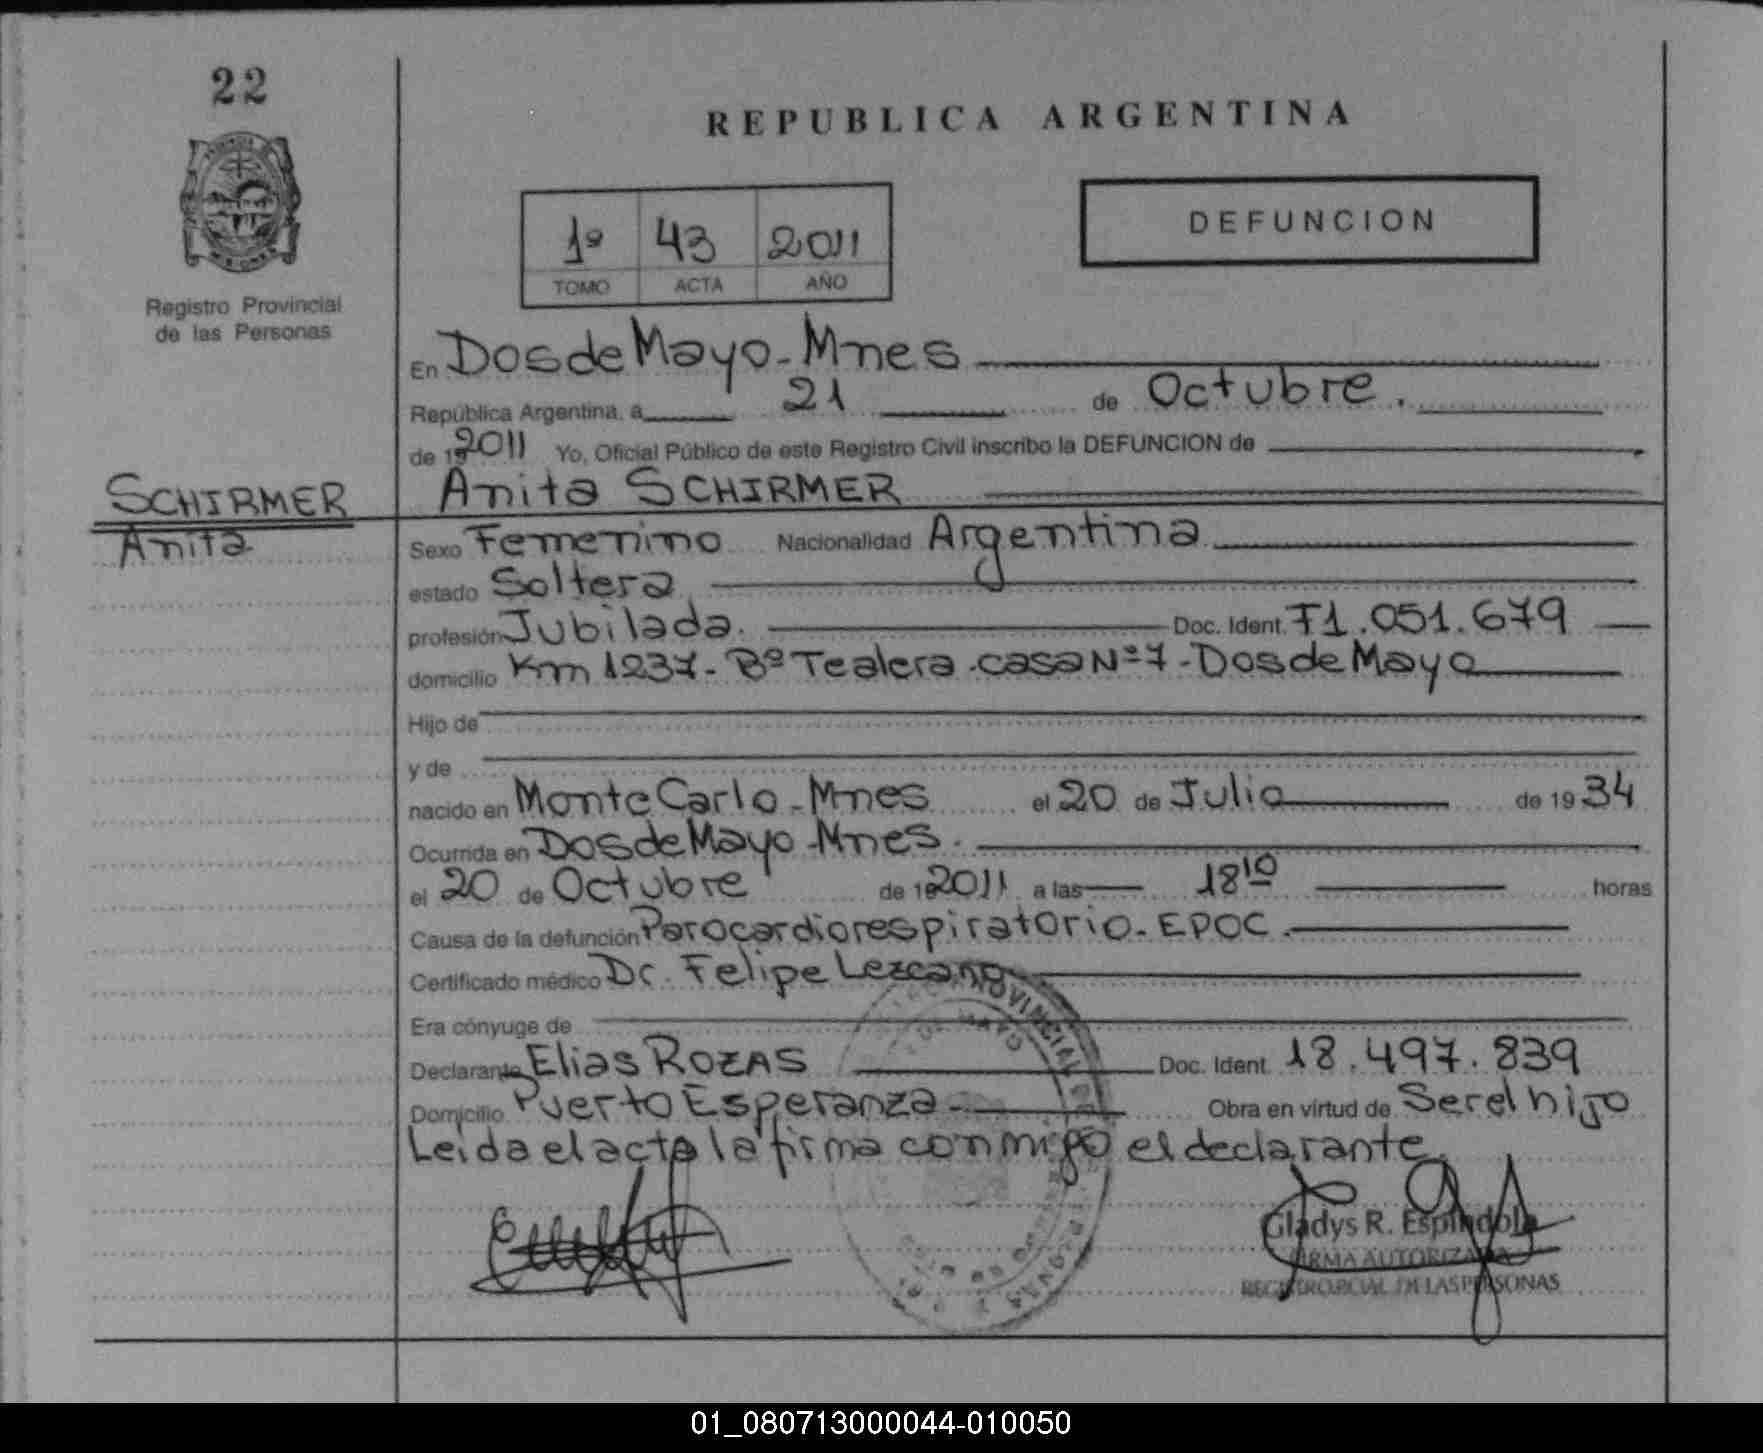 22
REPUBLICA ARGENTINA
1º 43 2011
TOMO ACTA AÑO
DEFUNCION
Registro Provincial
de las Personas
En Dos de Mayo - Mnes
República Argentina, a 21 de Octubre.
de 192011 Yo, Oficial Público de este Registro Civil inscribo la DEFUNCION de
SCHIRMER
Anita
Anita SCHIRMER
Sexo Femenino Nacionalidad Argentina
estado Soltera
profesión Jubilada. Doc. Ident. F1.051.679
domicilio Km 1237 - Bº Tealera - casa Nº 7 - Dos de Mayo
Hijo de
y de
nacido en Monte Carlo - Mnes el 20 de Julio de 19 34
Ocurrida en Dos de Mayo - Mnes.
el 20 de Octubre de 192011 a las 18 10 horas
Causa de la defunción Parocardiorespiratorio - EPOC.
Certificado médico Dr. Felipe Lezcano
Era cónyuge de
Declarante Elias ROZAS Doc. Ident. 18.497.839
Domicilio Puerto Esperanza - Obra en virtud de Ser el hijo
Leida el acta la firma conmigo el declarante.
Gladys R. Espindola
FIRMA AUTORIZADA
REGISTRO PCIAL. DE LAS PERSONAS
01_080713000044-010050